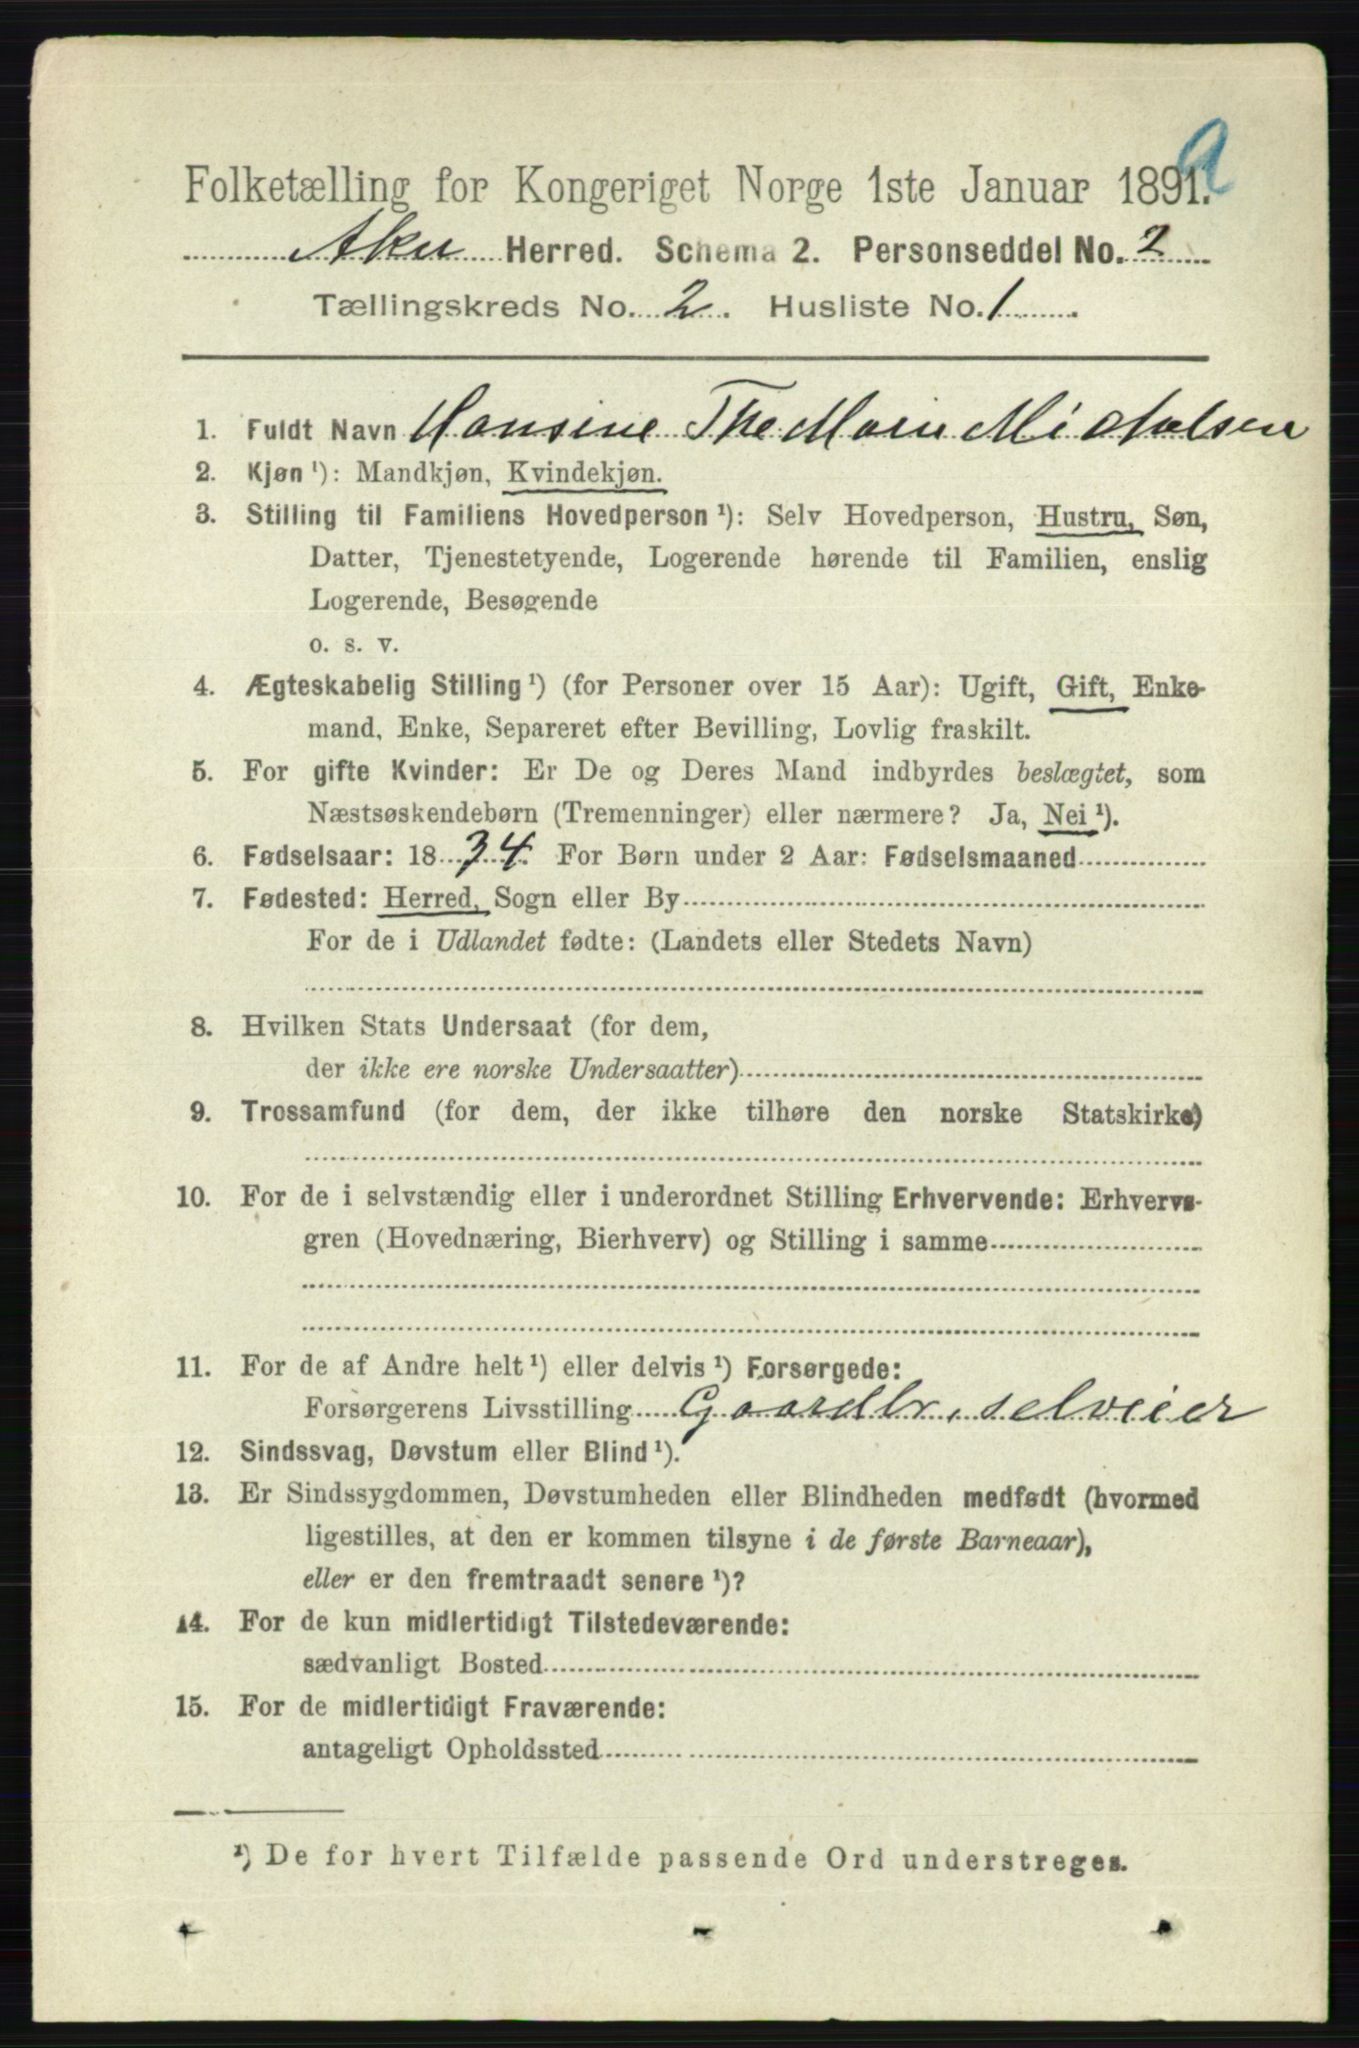 a
Folketælling for Kongeriget Norge 1ste Januar 1891.
Aker Herred. Schema 2. Personseddel No. 2
Tællingskreds No. 2. Husliste No. 1.
1. Fuldt Navn Hansine The Marie Michalsen
2. Kjøn ¹): Mandkjøn, Kvindekjøn.
3. Stilling til Familiens Hovedperson ¹): Selv Hovedperson, Hustru, Søn,
Datter, Tjenestetyende, Logerende hørende til Familien, enslig
Logerende, Besøgende
o. s. v.
4. Ægteskabelig Stilling ¹) (for Personer over 15 Aar): Ugift, Gift, Enke-
mand, Enke, Separeret efter Bevilling, Lovlig fraskilt.
5. For gifte Kvinder: Er De og Deres Mand indbyrdes beslægtet, som
Næstsøskendebørn (Tremenninger) eller nærmere? Ja, Nei ¹).
6. Fødselsaar: 1834. For Børn under 2 Aar: Fødselsmaaned
7. Fødested: Herred, Sogn eller By
For de i Udlandet fødte: (Landets eller Stedets Navn)
8. Hvilken Stats Undersaat (for dem,
der ikke ere norske Undersaatter)
9. Trossamfund (for dem, der ikke tilhøre den norske Statskirke)
10. For de i selvstændig eller i underordnet Stilling Erhvervende: Erhvervs-
gren (Hovednæring, Bierhverv) og Stilling i samme
11. For de af Andre helt ¹) eller delvis ¹) Forsørgede:
Forsørgerens Livsstilling Gaardbr. selveier
12. Sindssvag, Døvstum eller Blind ¹).
13. Er Sindssygdommen, Døvstumheden eller Blindheden medfødt (hvormed
ligestilles, at den er kommen tilsyne i de første Barneaar),
eller er den fremtraadt senere ¹)?
14. For de kun midlertidigt Tilstedeværende:
sædvanligt Bosted
15. For de midlertidigt Fraværende:
antageligt Opholdssted
¹) De for hvert Tilfælde passende Ord understreges.